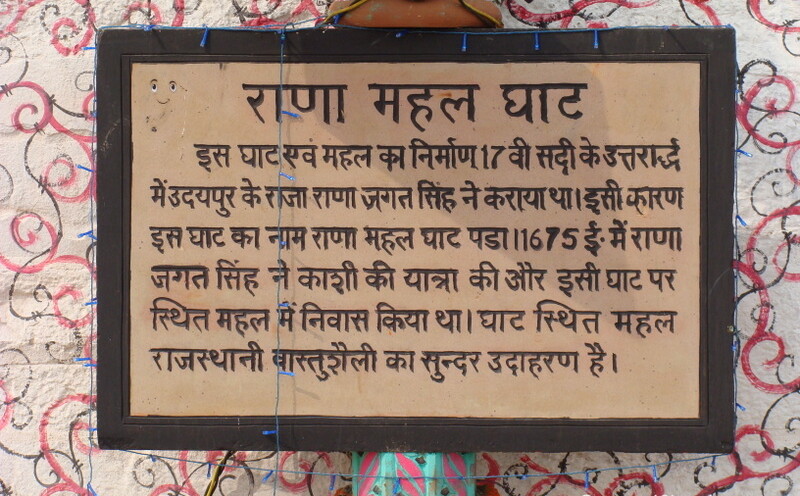 राणा महल घाट
इस घाट एवं महल का निर्माण 17 वी सदी के उत्तरार्द्ध
में उदयपुर के राजा राणा जगत सिंह ने कराया था। इसी कारण
इस घाट का नाम राणा महल घाट पडा।1675 ई॰ में राणा
जगत सिंह ने काशी की यात्रा की और इसी घाट पर
स्थित महल में निवास किया था। घाट स्थित महल
राजस्थानी वास्तुशैली का सुन्दर उदाहरण है।